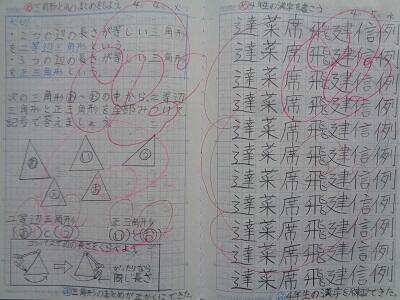 三角形と角のまとめをしよう
・2つの辺の長さが等しい三角形
を二等辺三角形という。
・3つの辺の長さが等しい三角形
を正三角形という。
次の三角形あ〜おの中から二等辺
三角形と正三角形を全部みつけて
記号で答えましょう。
あ い う
え お
二等辺三角形 正三角形
コンパスで辺の長さをくらべよう
ぴったりなら
同じ長さ
三角形のまとめが正かくにできた。
4年生の漢字を書こう
達菜席飛建信例
達菜席飛建信例
達菜席飛建信例
達菜席飛建信例
達菜席飛建信例
達菜席飛建信例
達菜席飛建信例
達菜席飛建信例
達菜席飛建信例
達菜席飛建信例
4年生の漢字を練習できた。